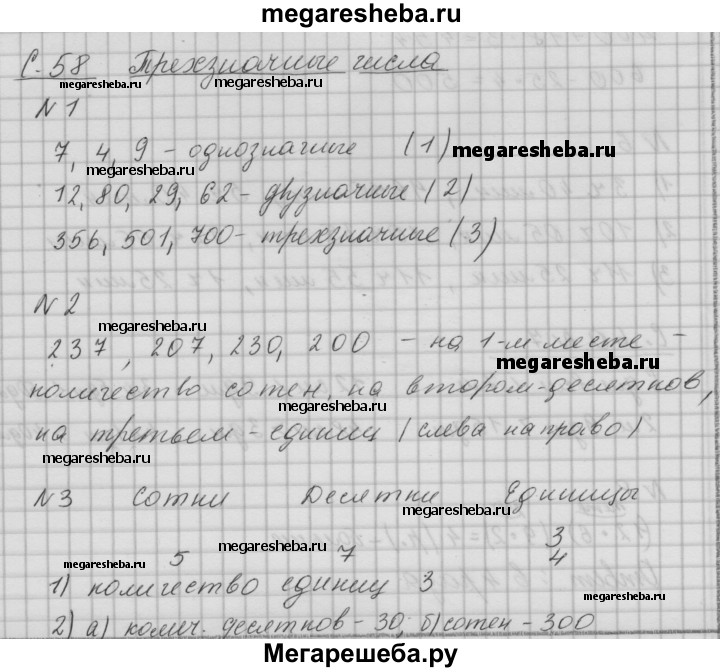 megaresheba.ru
С. 58 Трехзначные числа
megaresheba.ru megaresheba.ru
N 1
7, 4, 9 - однозначные (1) megaresheba.ru
megaresheba.ru
12, 80, 29, 62 - двузначные (2)
356, 501, 700 - трехзначные (3)
N 2
megaresheba.ru
237, 207, 230, 200 - на 1-м месте -
megaresheba.ru
количество сотен, на втором - десятков,
megaresheba.ru
на третьем - единиц (слева направо)
megaresheba.ru
N 3 Сотни Десятки Единицы
megaresheba.ru
3
5 megaresheba.ru 7 4
megaresheba.ru megaresheba.ru
1) количество единиц 3
2) а) колич. десятков - 30, б) сотен - 300
Мегарешеба.ру